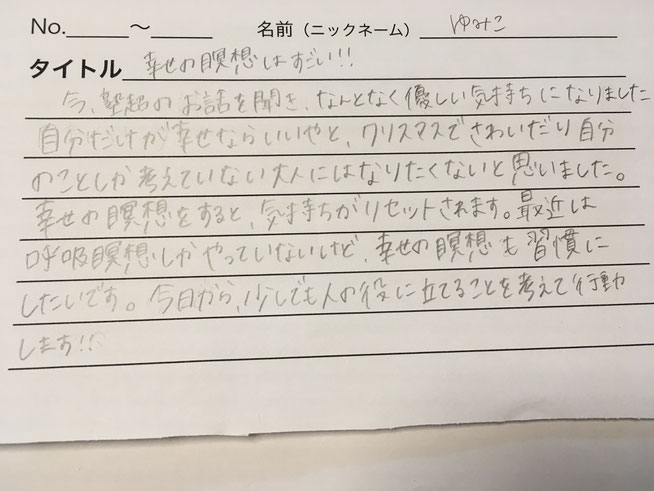 No.____～____ 名前（ニックネーム） ゆみこ
タイトル 幸せの瞑想はすごい!!
今、塾超のお話を聞き、なんとなく優しい気持ちになりました
自分だけが幸せならいいやと、クリスマスでさわいだり自分
のことしか考えていない大人にはなりたくないと思いました。
幸せの瞑想をすると、気持ちがリセットされます。最近は
呼吸瞑想しかやっていないけど、幸せの瞑想も習慣に
したいです。今日から、少しでも人の役に立てることを考えて行動
します!!